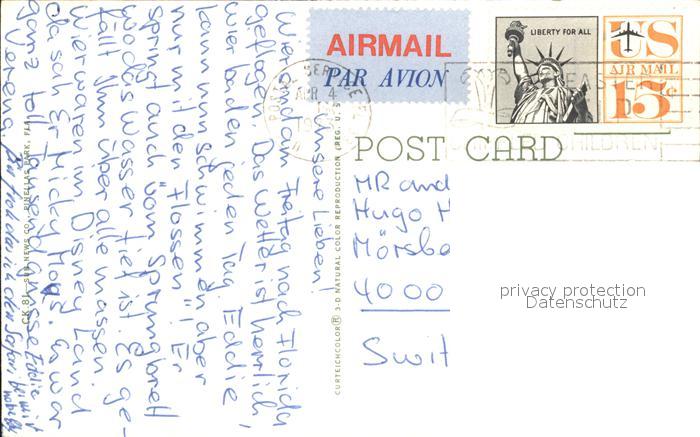 AIRMAIL
PAR AVION
LIBERTY FOR ALL
US
AIR MAIL
15c
APR 4
POST CARD
MR and
Hugo H
Mörsba
4000
Swit
privacy protection
Datenschutz
CURTEICHCOLOR® 3-D NATURAL COLOR REPRODUCTION (REG. U.S.
CK 81—SUN NEWS CO., PINELLAS PARK, FLA.
Unsere Lieben!
Wier sind am Freitag nach Florida
geflogen. Das Wetter ist herrlich,
wier baden jeden Tag. Eddie
kann nun schwimmen aber
nur mit den Flossen!! Er
springt auch vom Sprungbrett
wo das Wasser tief ist. Es ge-
fällt Ihm über alle massen.
Wier waren im Disney Land
da sah Er Micky Maus. Es war
ganz toll. Tausend Grüsse Eddie
Verena.